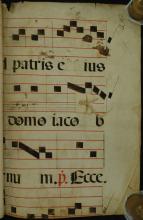 patris e ius
domo iaco b
nu m. p. Ecce.